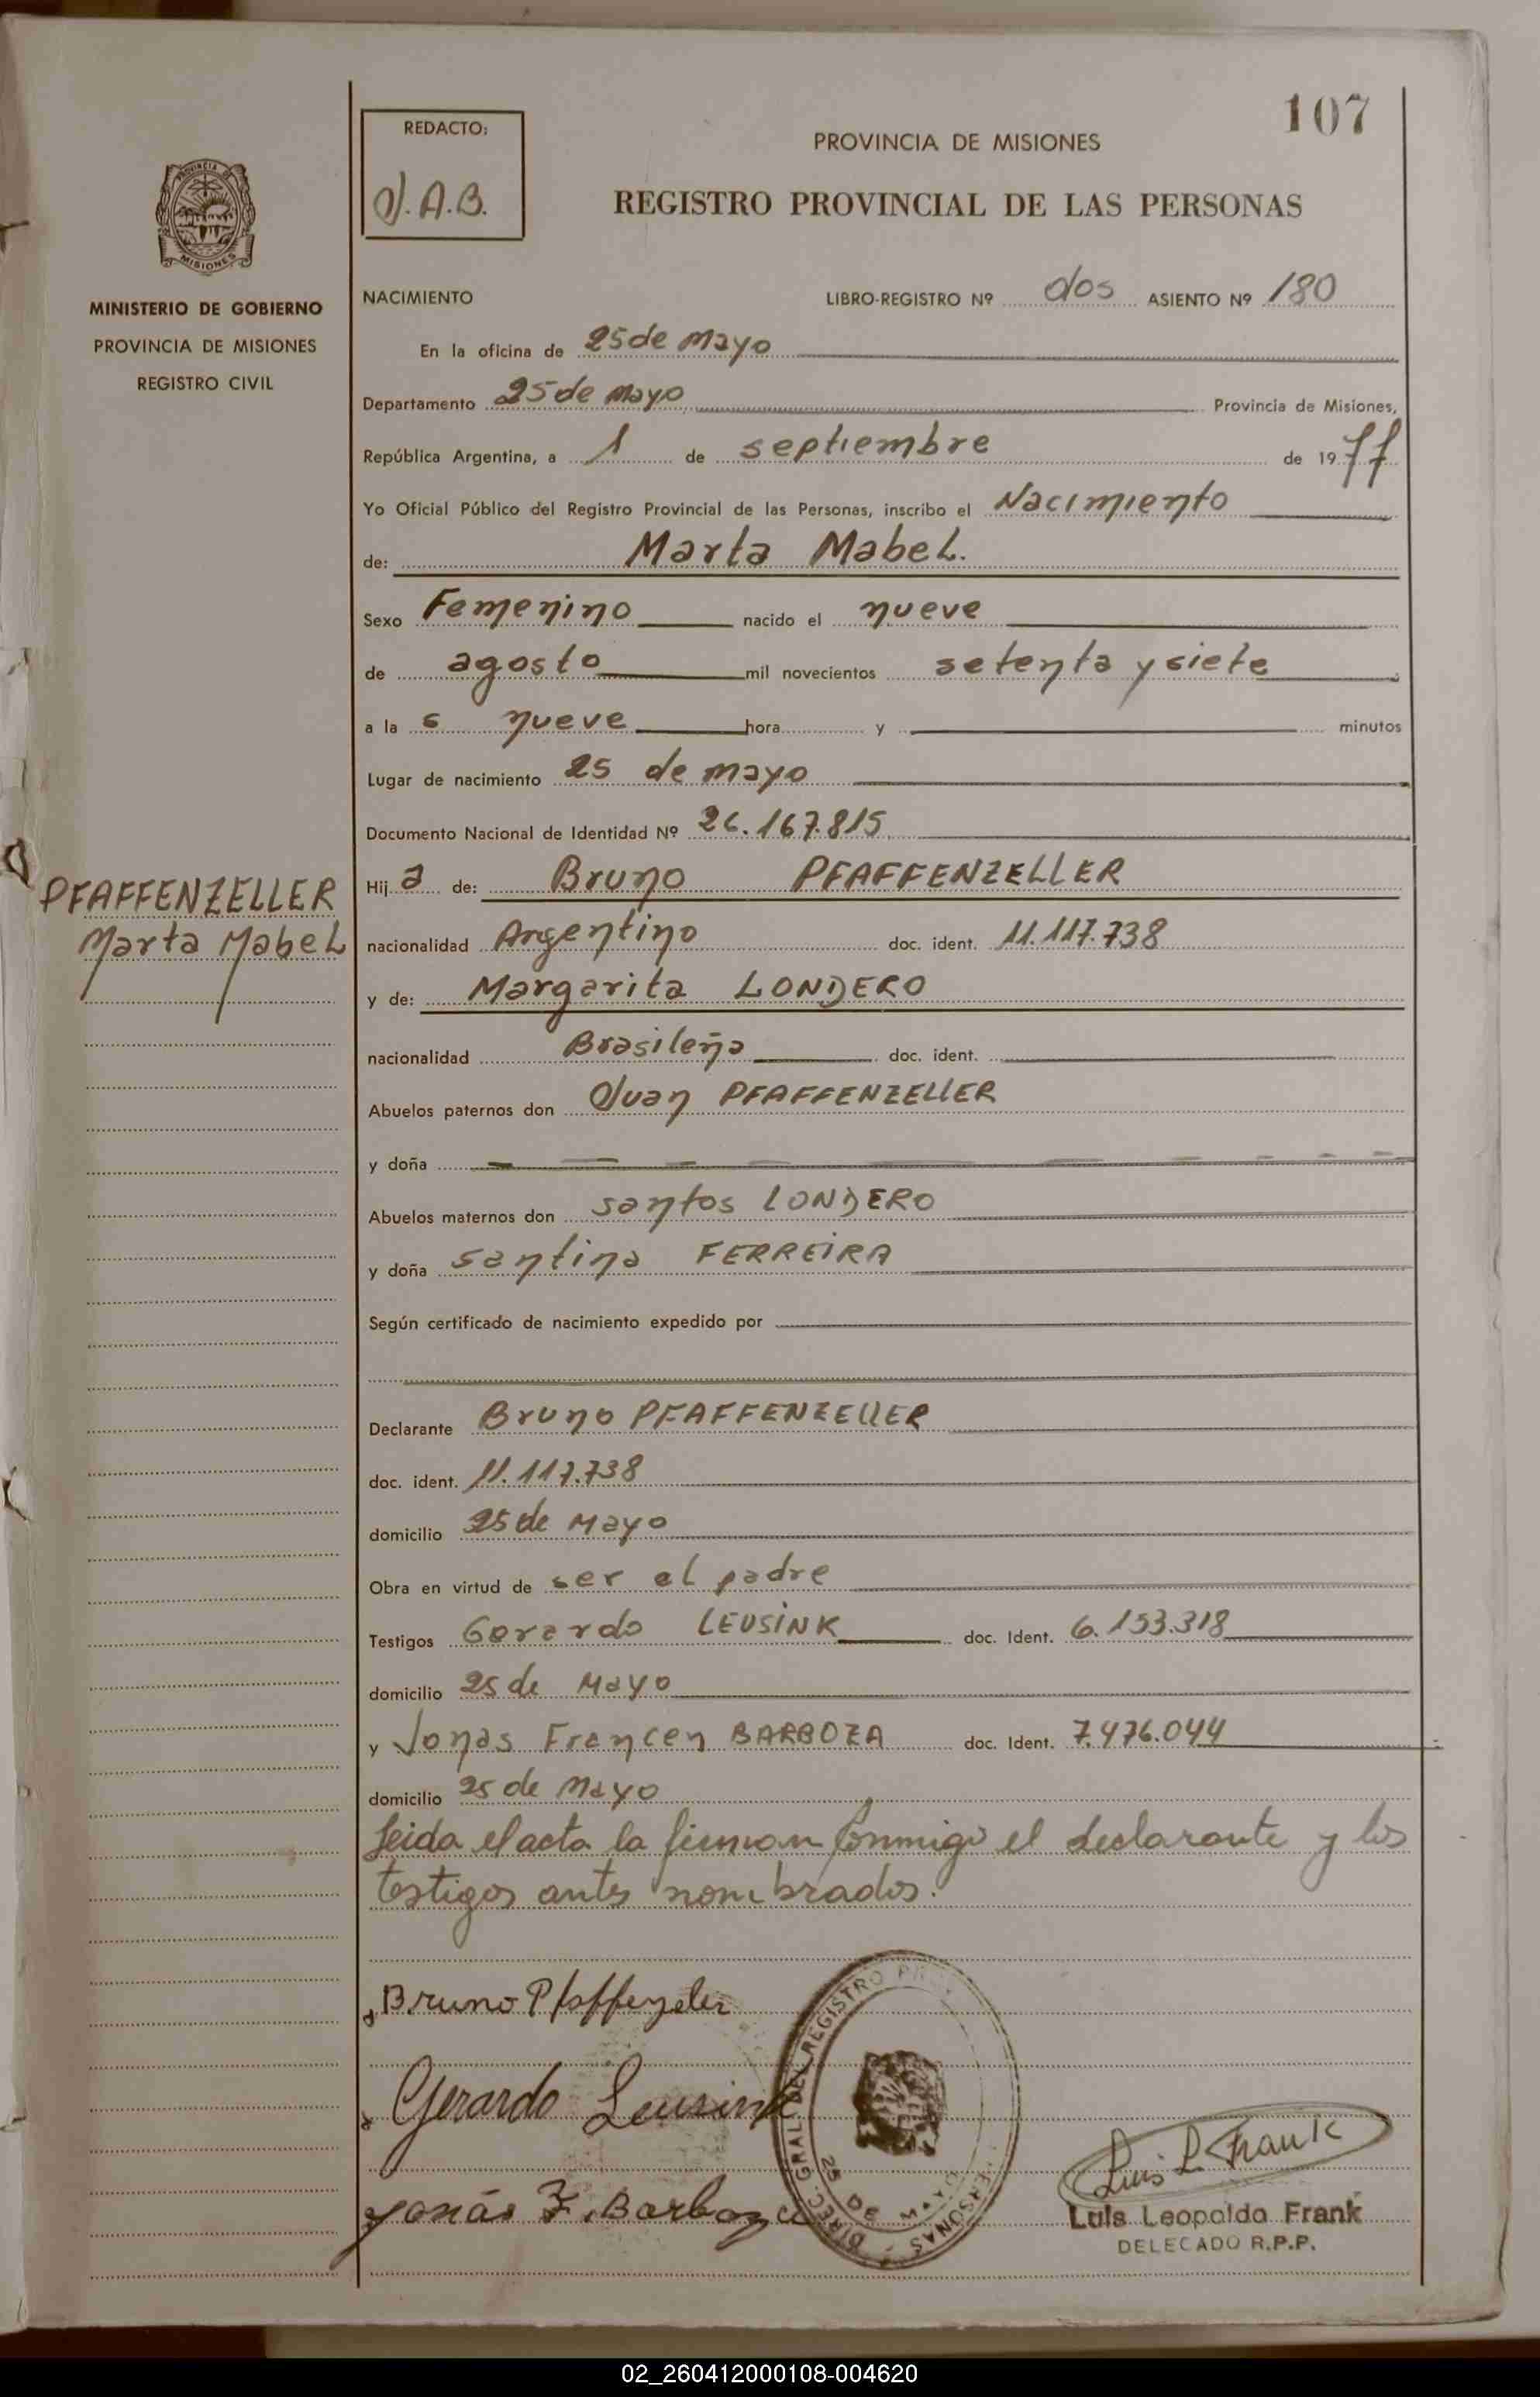 107
REDACTO:
J.A.B.
PROVINCIA DE MISIONES
REGISTRO PROVINCIAL DE LAS PERSONAS
PROVINCIA DE
MISIONES
MINISTERIO DE GOBIERNO
PROVINCIA DE MISIONES
REGISTRO CIVIL
NACIMIENTO LIBRO-REGISTRO Nº dos ASIENTO Nº 180
En la oficina de 25 de Mayo
Departamento 25 de Mayo Provincia de Misiones,
República Argentina, a 1 de septiembre de 1977
Yo Oficial Público del Registro Provincial de las Personas, inscribo el Nacimiento
de: Marta Mabel.
Sexo Femenino nacido el nueve
de agosto mil novecientos setenta y siete
a la s nueve hora y minutos
Lugar de nacimiento 25 de mayo
Documento Nacional de Identidad Nº 26.167.815
PFAFFENZELLER
Marta Mabel
Hij a de: Bruno PFAFFENZELLER
nacionalidad Argentino doc. ident. 11.117.738
y de: Margarita LONDERO
nacionalidad Brasileña doc. ident.
Abuelos paternos don Juan PFAFFENZELLER
y doña
Abuelos maternos don santos LONDERO
y doña santina FERREIRA
Según certificado de nacimiento expedido por
Declarante Bruno PFAFFENZELLER
doc. ident. 11.117.738
domicilio 25 de Mayo
Obra en virtud de ser el padre
Testigos Gerardo LEUSINK doc. Ident. 6.153.318
domicilio 25 de Mayo
y Jonas Francen BARBOZA doc. Ident. 7.476.044
domicilio 25 de Mayo
Leida el acta la firman conmigo el declarante y los
testigos antes nombrados.
Bruno Pfaffenzeler
Gerardo Leusink
Jonás F. Barboza
DIREC. GRAL. DEL REGISTRO PERSONAS
25 DE MAYO
Luis L Frank
Luis Leopoldo Frank
DELEGADO R.P.P.
02_260412000108-004620